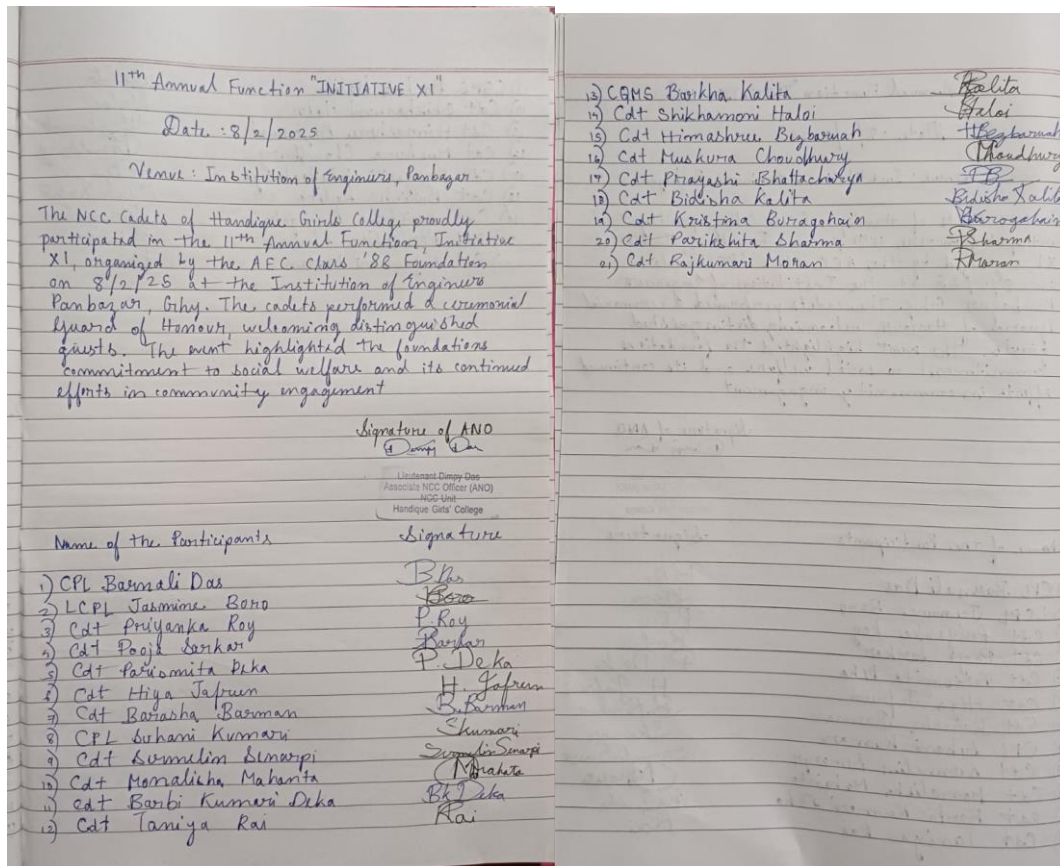 11th Annual Function "INITIATIVE XI"
Date : 8/2/2025
Venue : Institution of Engineers, Panbazar.
The NCC Cadets of Handique Girls College proudly
participated in the 11th Annual Function, Initiative
XI, organized by the AEC Class '88 Foundation
on 8/2/25 at the Institution of Engineers
Panbazar, Ghy. The cadets performed a ceremonial
Guard of Honour, welcoming distinguished
guests. The event highlighted the foundations
commitment to social welfare and its continued
efforts in community engagement
Signature of ANO
Dimpy Das
Lieutenant Dimpy Das
Associate NCC Officer (ANO)
NCC Unit
Handique Girls' College
Name of the Participants Signature
1) CPL Barnali Das B.Das
2) LCPL Jasmine Boro Boro
3) Cdt Priyanka Roy P.Roy
4) Cdt Pooja Sarkar Sarkar
5) Cdt Parismita Deka P. Deka
6) Cdt Hiya Jafrun H. Jafrun
7) Cdt Barasha Barman B.Barman
8) CPL Suhani Kumari Skumari
9) Cdt Surmelin Senarpi Surmelin Senarpi
10) Cdt Monalisha Mahanta
11) Cdt Barbi Kumari Deka BK Deka
12) Cdt Taniya Rai Rai
13) CQMS Barkha Kalita Kalita
14) Cdt Shikhamoni Haloi Haloi
15) Cdt Himashree Bezbaruah HBezbaruah
16) Cdt Muskura Choudhury Choudhury
17) Cdt Prayashi Bhattacharya PB
18) Cdt Bidisha Kalita Bidisha Kalita
19) Cdt Kristina Buragohain Buragohain
20) Cdt Parikshita Sharma PSharma
21) Cdt Rajkumari Moran RMoran